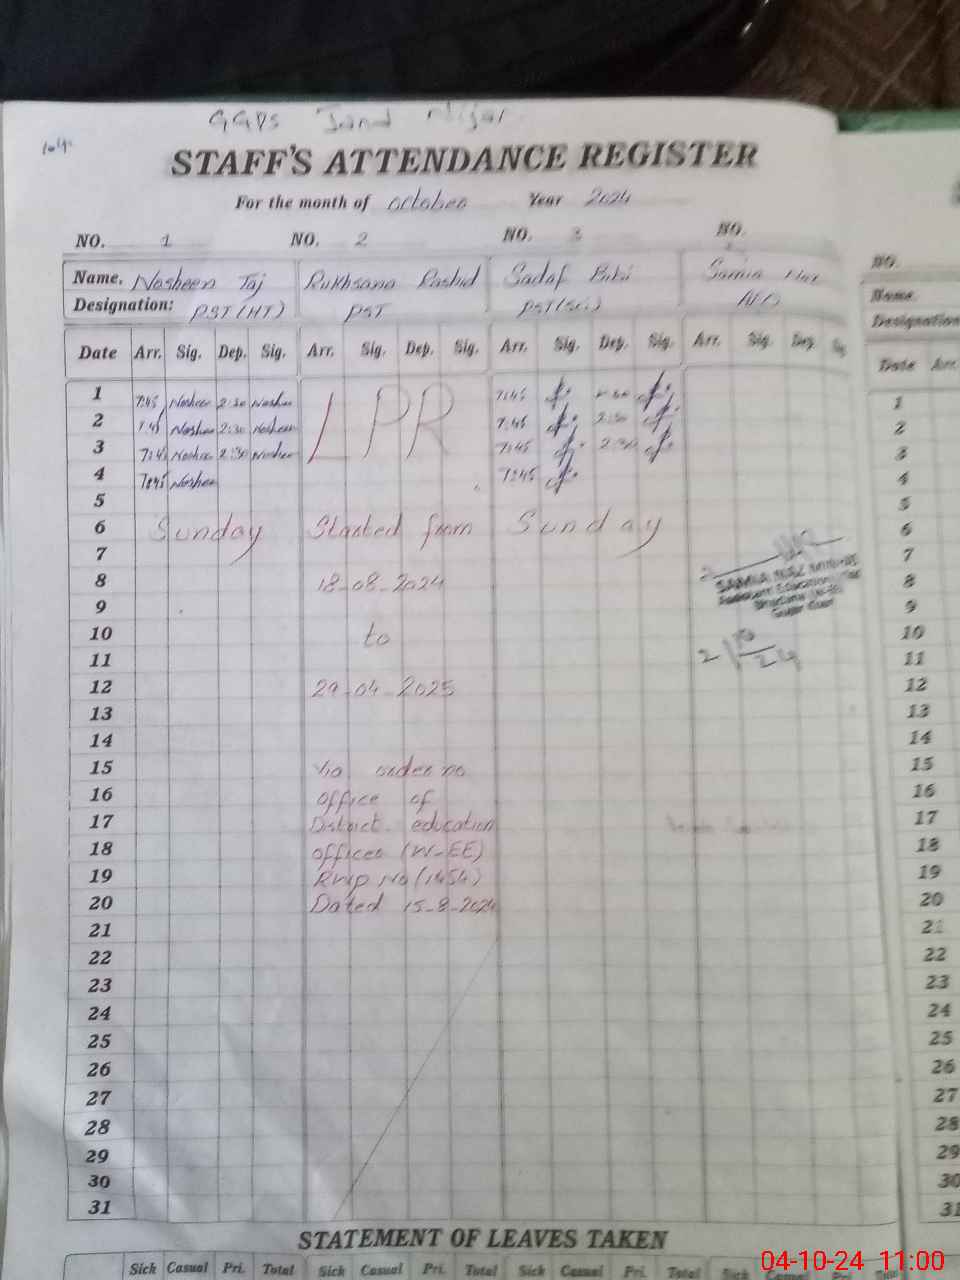 GGPS Jand Nijar
STAFF'S ATTENDANCE REGISTER
For the month of October Year 2024
NO. 1 NO. 2 NO. 3 NO.
NO.
Name. Nosheen Taj Rukhsana Rashid Sadaf Bibi Samia Naz
Name.
Designation: PST(HT) PST
Designation
Date Arr. Sig. Dep. Sig. Arr. Sig. Dep. Sig. Arr. Sig. Dep. Sig. Arr. Sig. Dep. Sig
Date Arr.
1 7:45 Nosheen 2:30 Nosheen LPR 7:45 1
2 7:45 Nosheen 2:30 Nosheen 7:45 2:30 2
3 7:45 Nosheen 2:30 Nosheen 7:45 2:30 3
4 7:45 Nosheen 7:45 4
5 5
6 Sunday Started from Sunday 6
7 7
8 18-08-2024 8
SAMIA NAZ
9 9
10 to 10
11 2/10/24 11
12 29-04-2025 12
13 13
14 14
15 Via order no 15
16 office of 16
17 District education 17
18 officer (W-EE) 18
19 RWP No (1454) 19
20 Dated 15-8-2024 20
21 21
22 22
23 23
24 24
25 25
26 26
27 27
28 28
29 29
30 30
31 31
STATEMENT OF LEAVES TAKEN
Sick Casual Pri. Total Sick Casual Pri. Total Sick Casual Pri. Total Sick Casual
04-10-24 11:00